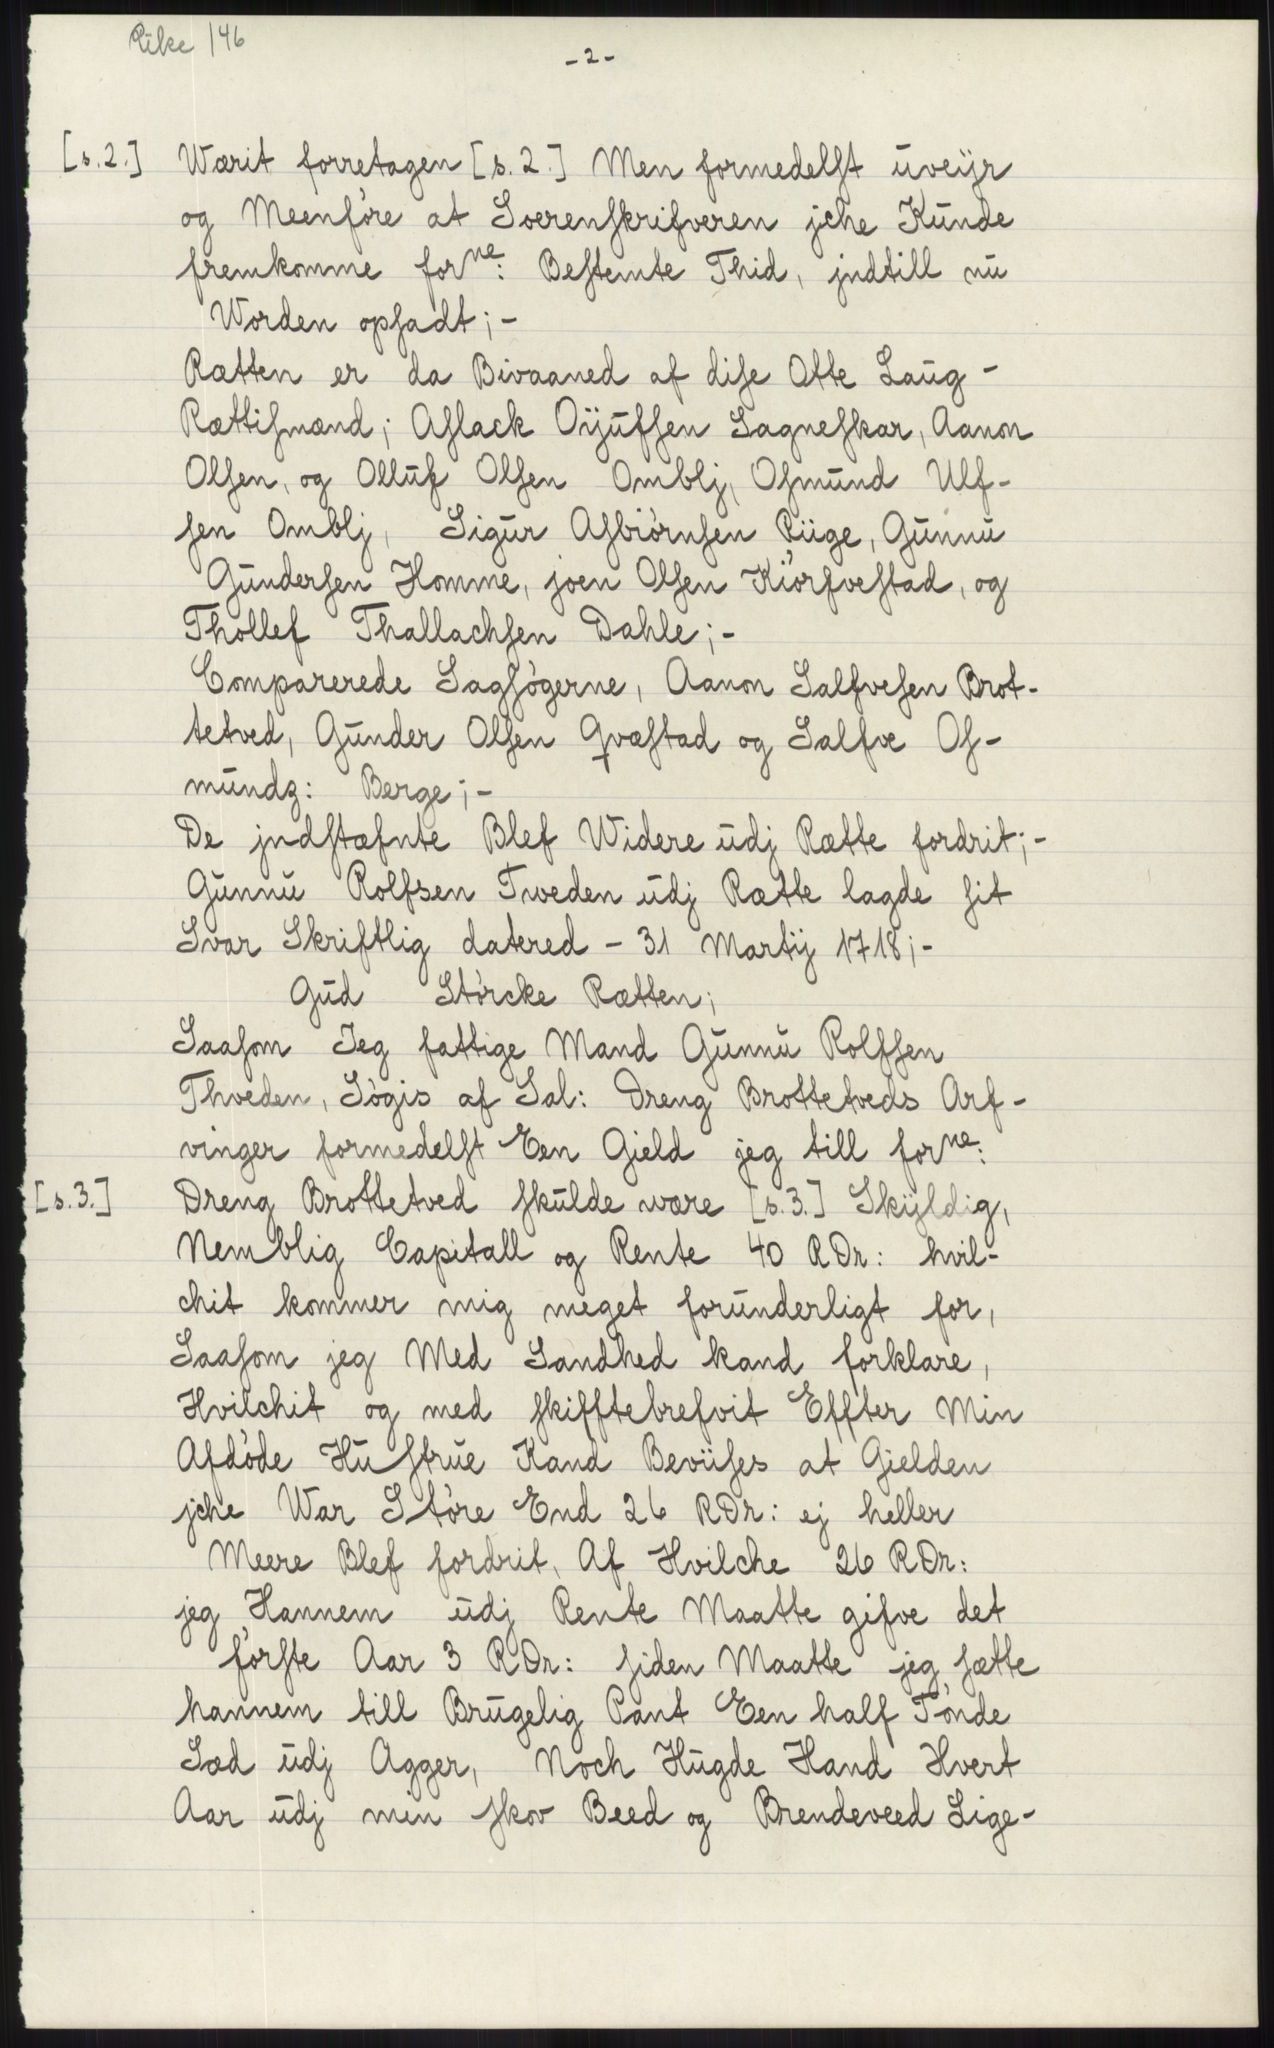 Rike 146
- 2 -
[s.2.] Wærit forretagen [s.2.] Men formedelst uveijr
og Meenføre at Soerenskrifveren jche Kunde
fremkomme forne: Bestemte Thid, jndtill nu
Worden opsadt; -
Rætten er da Bivaaned af dise Otte Laug -
Rættismænd; Aslack Oijufsen Sagneskar, Aanon
Olsen, og Olluf Olsen Omblj, Osmund Ulf-
sen Omblj, Sigur Asbiørnsen Riige, Gunnu
Gundersen Homme, joen Olsen Kiørfvestad, og
Thollef Thallachsen Dahle; -
Comparerede Sagsøgerne, Aanon Salfvesen Brot-
tetved, Gunder Olsen Qvæstad og Salfve Os-
mundz: Berge; -
De jndstæfnte Blef Widere udj Rætte fordrit; -
Gunnu Rolfsen Tweden udj Rætte lagde sit
Svar Skriftlig datered - 31 Martij 1718; -
Gud Størcke Rætten;
Saasom Jeg fattige Mand Gunnu Rolfsen
Thveden, Søgis af Sal: Dreng Brottetveds Arf-
vinger formedelst Een Gield jeg till forne:
[s.3.] Dreng Brottetved skulde wære [s.3.] Skijldig,
Nemblig Capitall og Rente 40 RDr: hvil-
chit kommer mig meget forunderligt for,
Saasom jeg Med Sandhed kand forklare,
Hvilchit og med skifftebrefvit Effter Min
Afdøde Hustrue Kand Beviises at Gielden
jche War Støre End 26 RDr: ej heller
Meere Blef fordrit, Af Hvilche 26 RDr:
jeg Hannem udj Rente Maatte gifve det
første Aar 3 RDr: siden Maatte jeg sætte
hannem till Brugelig Pant Een half Tønde
Sæd udj Agger, Noch Hugde Hand Hvert
Aar udj min skov Beed og Brendeveed Lige-